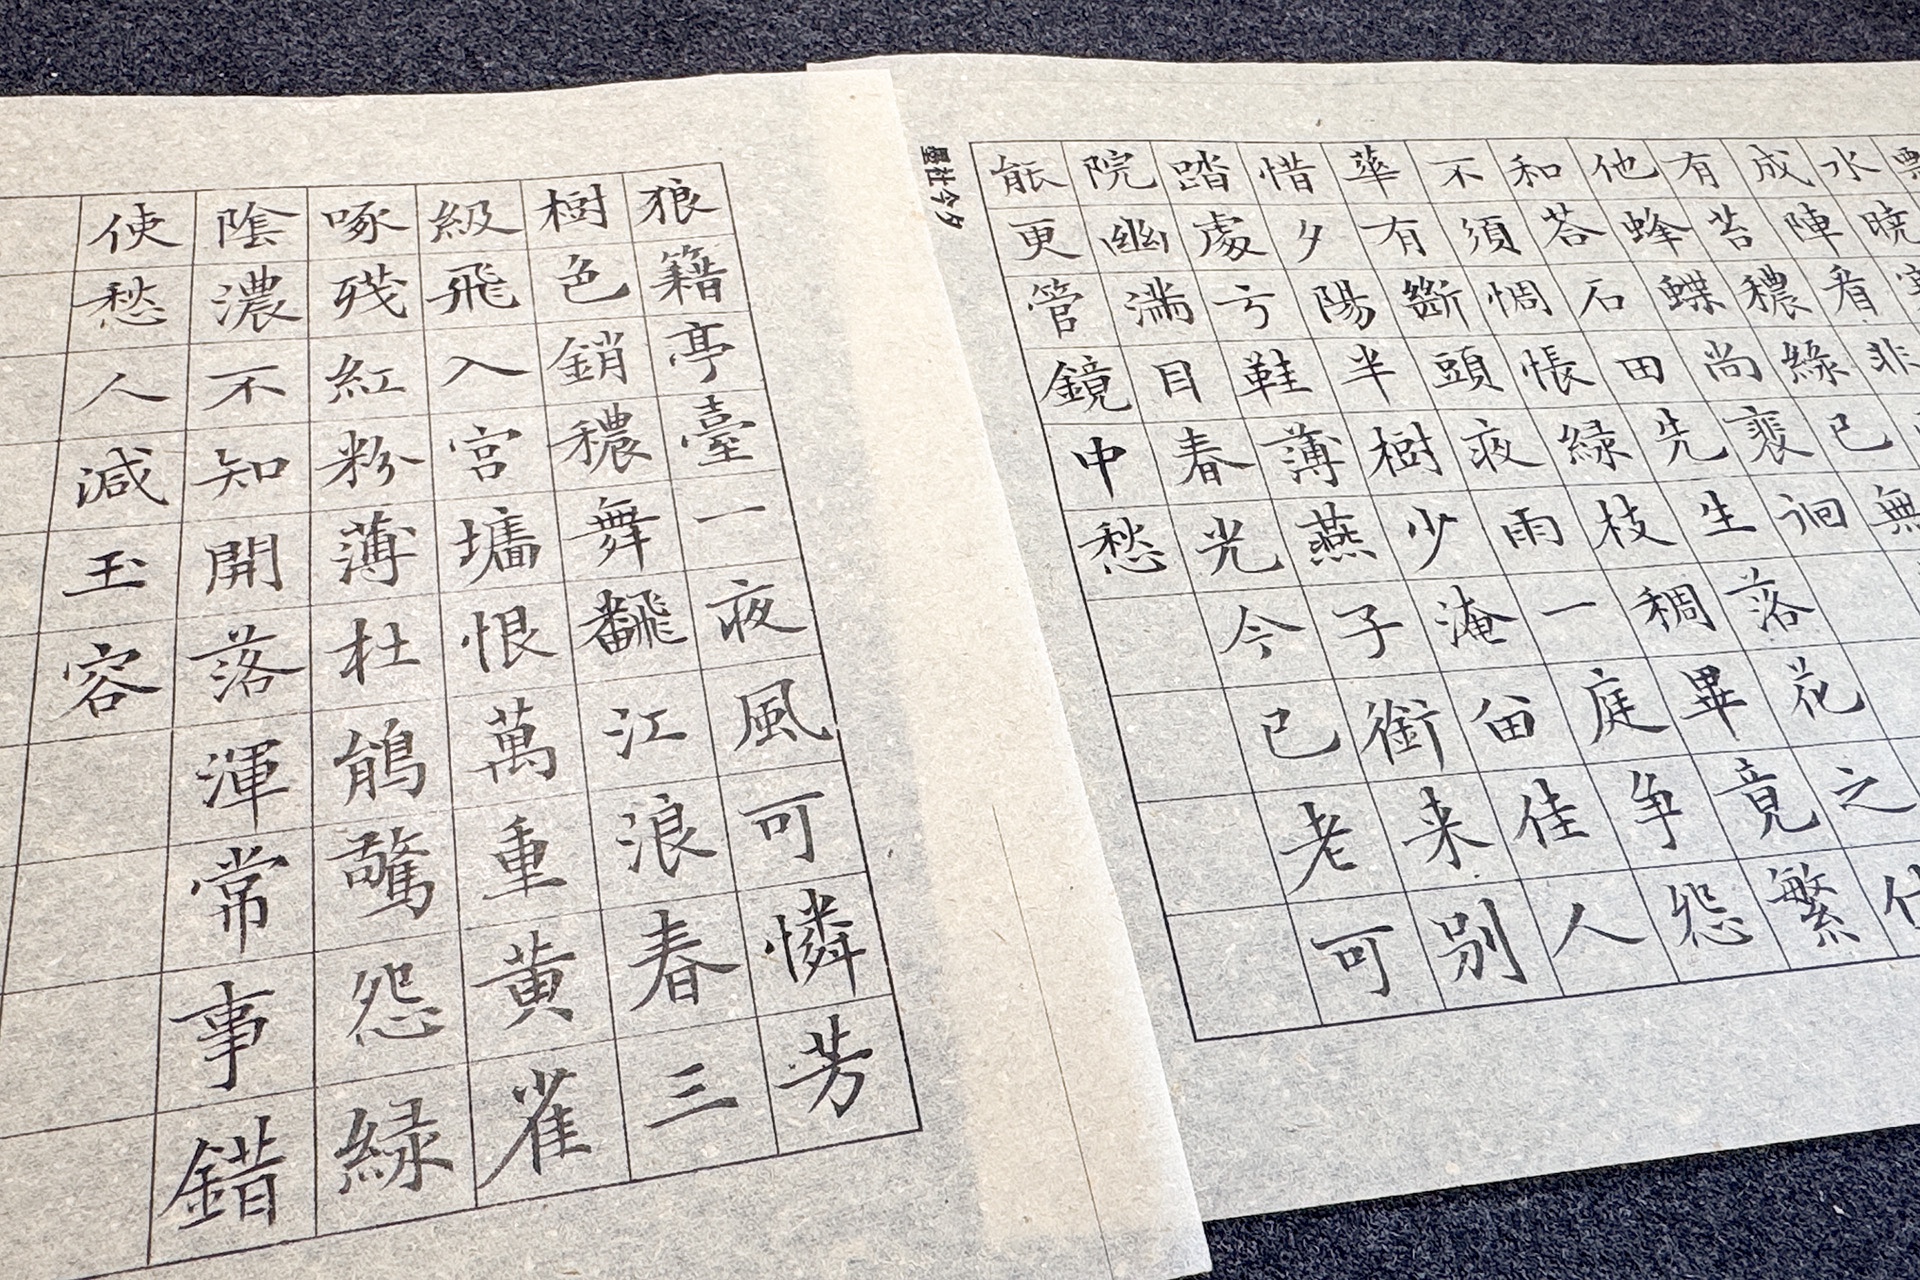 水晓
成陣看非
有苔穠緣已無
他蜂蝶尚裴徊
和荅石田先生落花之什
不須惆悵緑枝稠畢竟繁
華有斷頭夜雨一庭争怨
惜夕陽半樹少淹畄佳人
踏處亏鞋薄燕子銜来别
院幽満目春光今已老可
能更管鏡中愁
墨社今夕
狼籍亭臺一夜風可憐芳
樹色銷穠舞飜江浪春三
級飛入宮墻恨萬重黄雀
啄殘紅粉薄杜鵑驚怨緑
陰濃不知開落渾常事錯
使愁人減玉容